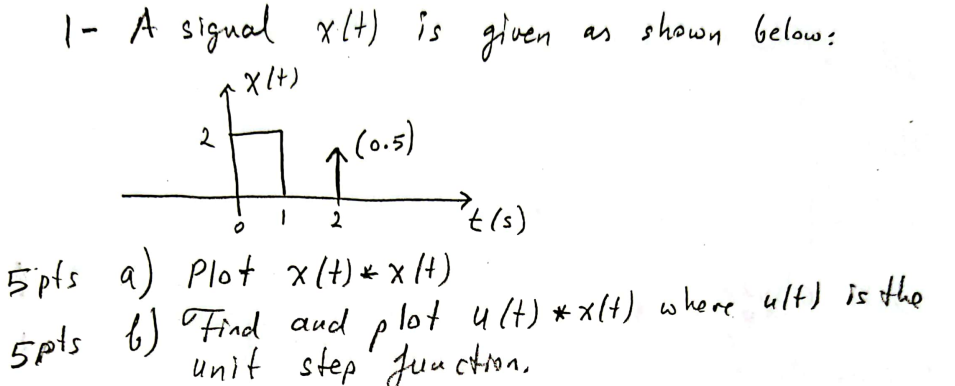 1- A signal x(t) is given as shown below:
x(t)
2
(0.5)
0 1 2
t(s)
5pts a) Plot x(t) * x(t)
5pts b) Find and plot u(t) * x(t) where u(t) is the
unit step function.